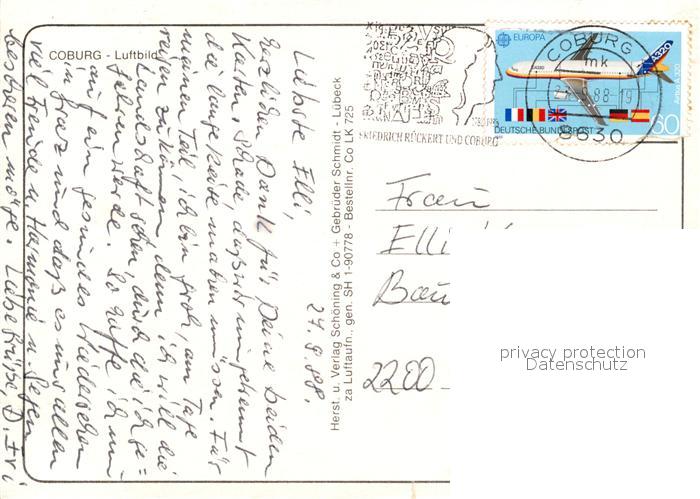 COBURG - Luftbild
24.8.88.
Liebste Elli,
herzlichen Dank für Deine beiden
Karten. Schade, daß wir umgekehrt
die lange Reise machen müssen. Für
meinen Teil, ich bin froh, am Tage
reisen zu können, denn ich will die
Landschaft sehen, durch die ich ge=
fahren werde. So hoffe ich nun
auf ein gesundes Wiedersehen
in Graz und daß es uns allen
viel Freude u. Harmonie u. Segen
bescheren möge. Liebe Grüße, D. Evi
Herst. u. Verlag Schöning & Co + Gebrüder Schmidt - Lübeck
za Luftaufn., gen. SH 1-90778 - Bestellnr. Co LK 725
FRIEDRICH RÜCKERT UND COBURG
EUROPA
COBURG
mk
88-19
8630
A320
Airbus A320
DEUTSCHE BUNDESPOST
60
Frau
Elli
Bau
2200
privacy protection
Datenschutz